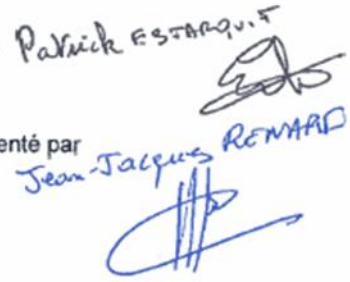 Patrick ESTARQUIT
enté par
Jean-Jacques RENARD